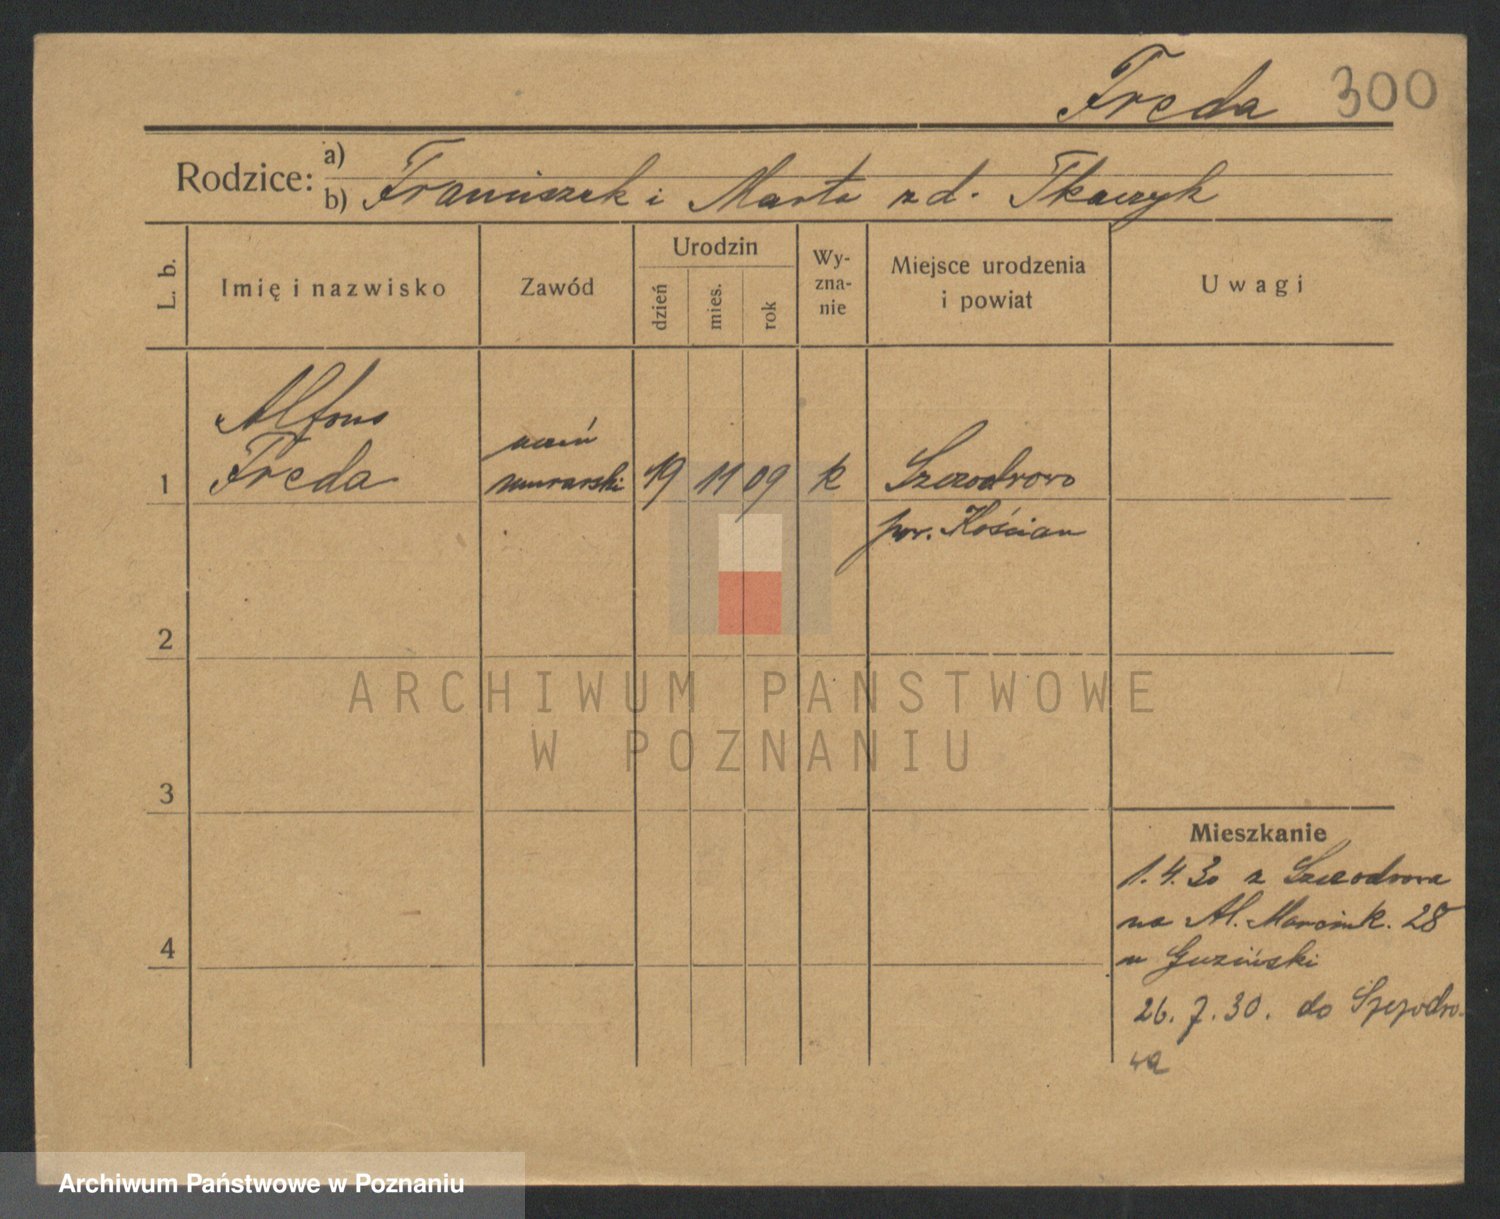 Freda 300
Rodzice: a)
b) Franciszek i Marta z d. Tkaczyk
L. b.
Imię i nazwisko
Zawód
Urodzin
dzień
mies.
rok
Wy-
zna-
nie
Miejsce urodzenia
i powiat
Uwagi
Alfons
Freda
uczeń
murarski
1 19 11 09 k Szczodrowo
pow. Kościan
2
ARCHIWUM PAŃSTWOWE
W POZNANIU
3
Mieszkanie
1.4.30 z Szczodrowa
na Al. Marcink. 28
u Guziński
4
26.7.30. do Szczodro-
wa
Archiwum Państwowe w Poznaniu